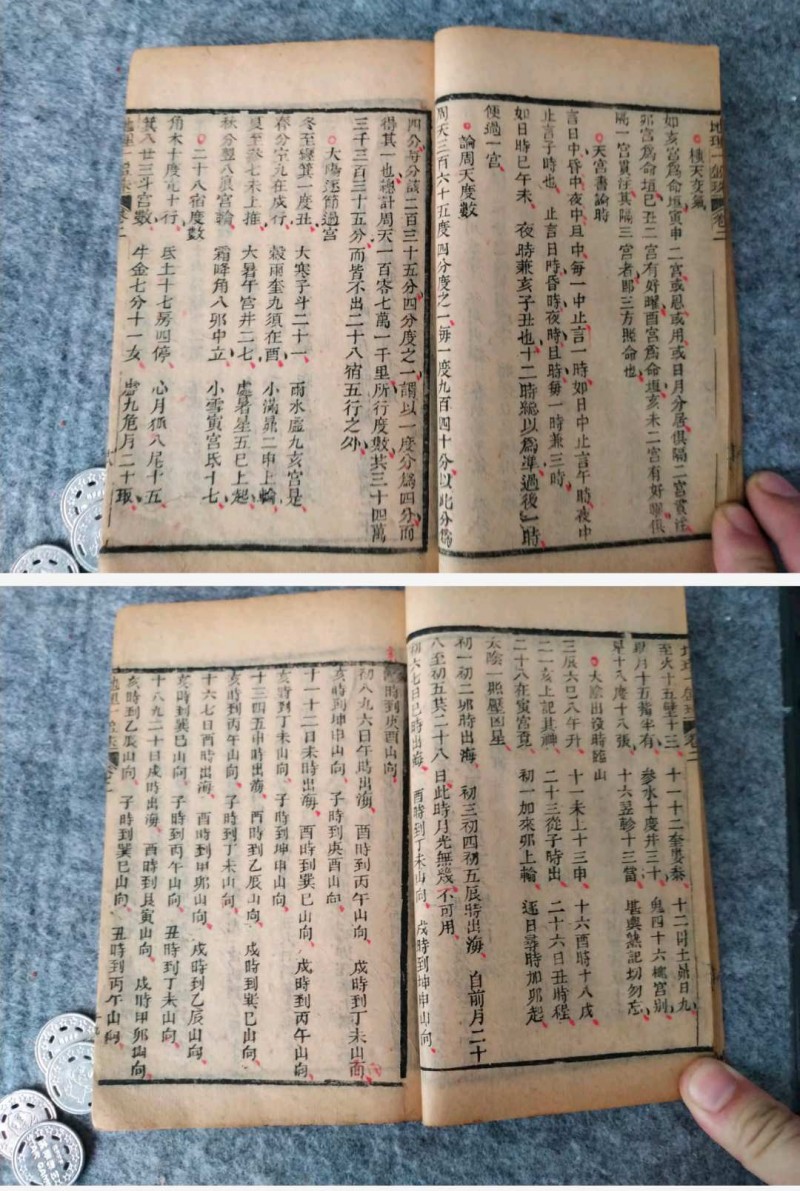 樓天交氣
如亥宮爲命垣寅申二宮或恩或用或日月分居俱隔二宮貴徃
卯宮爲命垣巳丑二宮有好曜酉宮爲命垣亥未二宮有好曜俱
隔一宮貴徃其隔三宮者即三方照命也
天宮書論時
言日中昏中夜中旦中每一中止言一時如日中止言午時夜中
止言子時也止言日時昏時夜時旦時每一時兼三時
如日時巳午未夜時兼亥子丑也十二時總以爲準過後時
便過一宮
論周天度數
周天三百六十五度四分度之一每一度九百四十分以此分爲
四分每分該二百三十五分四分度之一謂以一度分爲四分而
得其一也總計周天一百零七萬一千里所行度數其三十四萬
三千三百三十五分而皆不出二十八宿五行之外
太陽逐節過宮
冬至纏箕一度丑 大寒子斗二十一 雨水虛九亥宮是
春分室九在戌行 穀雨奎九須在酉 小滿昴二申上輪
夏至參七未上推 大暑午宮井二七 處暑星五巳上起
秋分翌八辰宮輪 霜降角八卯中立 小雪寅宮氐十七
二十八宿度數
角木十度亢十行 氐土十七房四停 心月狐八尾十五
箕八廿三斗宮數 牛金七分十一女 虛九危月二十取
地理一盤珠 卷二
至火十五壁十三 十一十二奎婁泰 十二胃土昴日九
畢月十五指半有 參水十度井三十 鬼四十六極宮別
星十八度十八張 十六翌軫十三當 堪輿熟記切勿忘
太陰出没時臨山
三辰六巳八午升 十一未上十三申 十六酉時十八戌
二一亥上記其神 二十三從子時出 二十六日丑時程
二十八在寅宮覓 初一加來卯上輪 逐日尋時加卯起
太陰一照壓凶星
初一初二卯時出海 初三初四初五辰時出海 自前月二十
八至初五共二十八日此時月光無幾不可用
初六七日巳時出海 酉時到丁未山向 戌時到坤申山向
亥時到庚酉山向
初八九六日午時出海 酉時到丙午山向 戌時到丁未山向
亥時到坤申山向 子時到庚酉山向
十一十二日未時出海 酉時到巽巳山向 戌時到丙午山向
亥時到丁未山向 子時到坤申山向
十三四五申時出海 酉時到乙辰山向 戌時到巽巳山向
亥時到丙午山向 子時到丁未山向
十六七日酉時出海 酉時到甲卯山向 戌時到乙辰山向
亥時到巽巳山向 子時到丙午山向 丑時到丁未山向
十八九二十日戌時出海 酉時到艮寅山向 戌時甲卯山向
亥時到乙辰山向 子時到巽巳山向 丑時到丙午山向